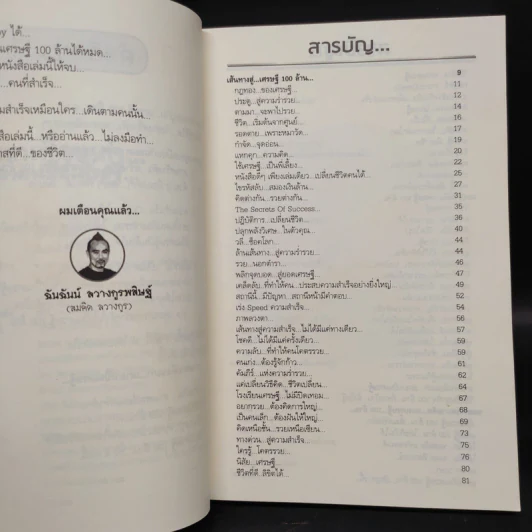 by ได้...
เศรษฐี 100 ล้านได้หมด...
หนังสือเล่มนี้ให้จบ...
...คนที่สำเร็จ...
สำเร็จเหมือนใคร...เดินตามคนนั้น
...หรืออ่านแล้ว...ไม่ลงมือทำ...
...ของชีวิต...
ผมเตือนคุณแล้ว...
ฉันฉันน์ ลวางกูรพสิษฐ์
(สมคิด ลวางกูร)
สารบัญ...
เส้นทางสู่...เศรษฐี 100 ล้าน... 9
กฎทอง...ของเศรษฐี... 11
ประตู...สู่ความร่ำรวย... 12
ตามมา...จะพาไปรวย... 14
ชีวิต...เริ่มต้นจากศูนย์... 17
รอดตาย...เพราะหมาวัด... 18
กำจัด...จุดอ่อน... 19
แหกคุก...ความคิด... 20
ใช้เศรษฐี...เป็นพี่เลี้ยง... 22
หนังสือดีๆ เพียงเล่มเดียว...เปลี่ยนชีวิตคนได้... 25
ไขรหัสลับ...สมองเงินล้าน... 27
คิดต่างกัน...รวยต่างกัน... 31
The Secrets Of Success... 35
ปฏิบัติการ...เปลี่ยนชีวิต... 36
ปลุกพลังวิเศษ...ในตัวคุณ... 40
วลี...ช็อคโลก... 44
ล้านเส้นทาง...สู่ความร่ำรวย... 44
รวย...นอกตำรา... 46
พลิกจุดบอด...สู่ยอดเศรษฐี... 47
เคล็ดลับ..ที่ทำให้คน...ประสบความสำเร็จอย่างยิ่งใหญ่... 49
สถานีนี้...มีปัญหา...สถานีหน้ามีคำตอบ... 52
เร่ง Speed ความสำเร็จ... 54
ภาพลวงตา... 56
เส้นทางสู่ความสำเร็จ...ไม่ได้มีแค่ทางเดียว... 57
โชคดี...ไม่ได้มีแค่ครั้งเดียว... 59
ความลับ...ที่ทำให้คนโคตรรวย... 59
คนเก่ง...ต้องรู้จักก้าว... 61
คัมภีร์...แห่งความร่ำรวย... 62
แค่เปลี่ยนวิธีคิด...ชีวิตเปลี่ยน... 64
โรงเรียนเศรษฐี...ไม่มีปิดเทอม... 67
อยากรวย...ต้องคิดการใหญ่... 68
เป็นคนเล็ก...ต้องฝันให้ใหญ่... 71
คิดเหนือชั้น...รวยเหนือเซียน... 73
ทางด่วน...สู่ความสำเร็จ... 75
ใครรู้...โคตรรวย... 76
นิสัย...เศรษฐี... 80
ชีวิตที่ดี..ลิขิตได้... 81